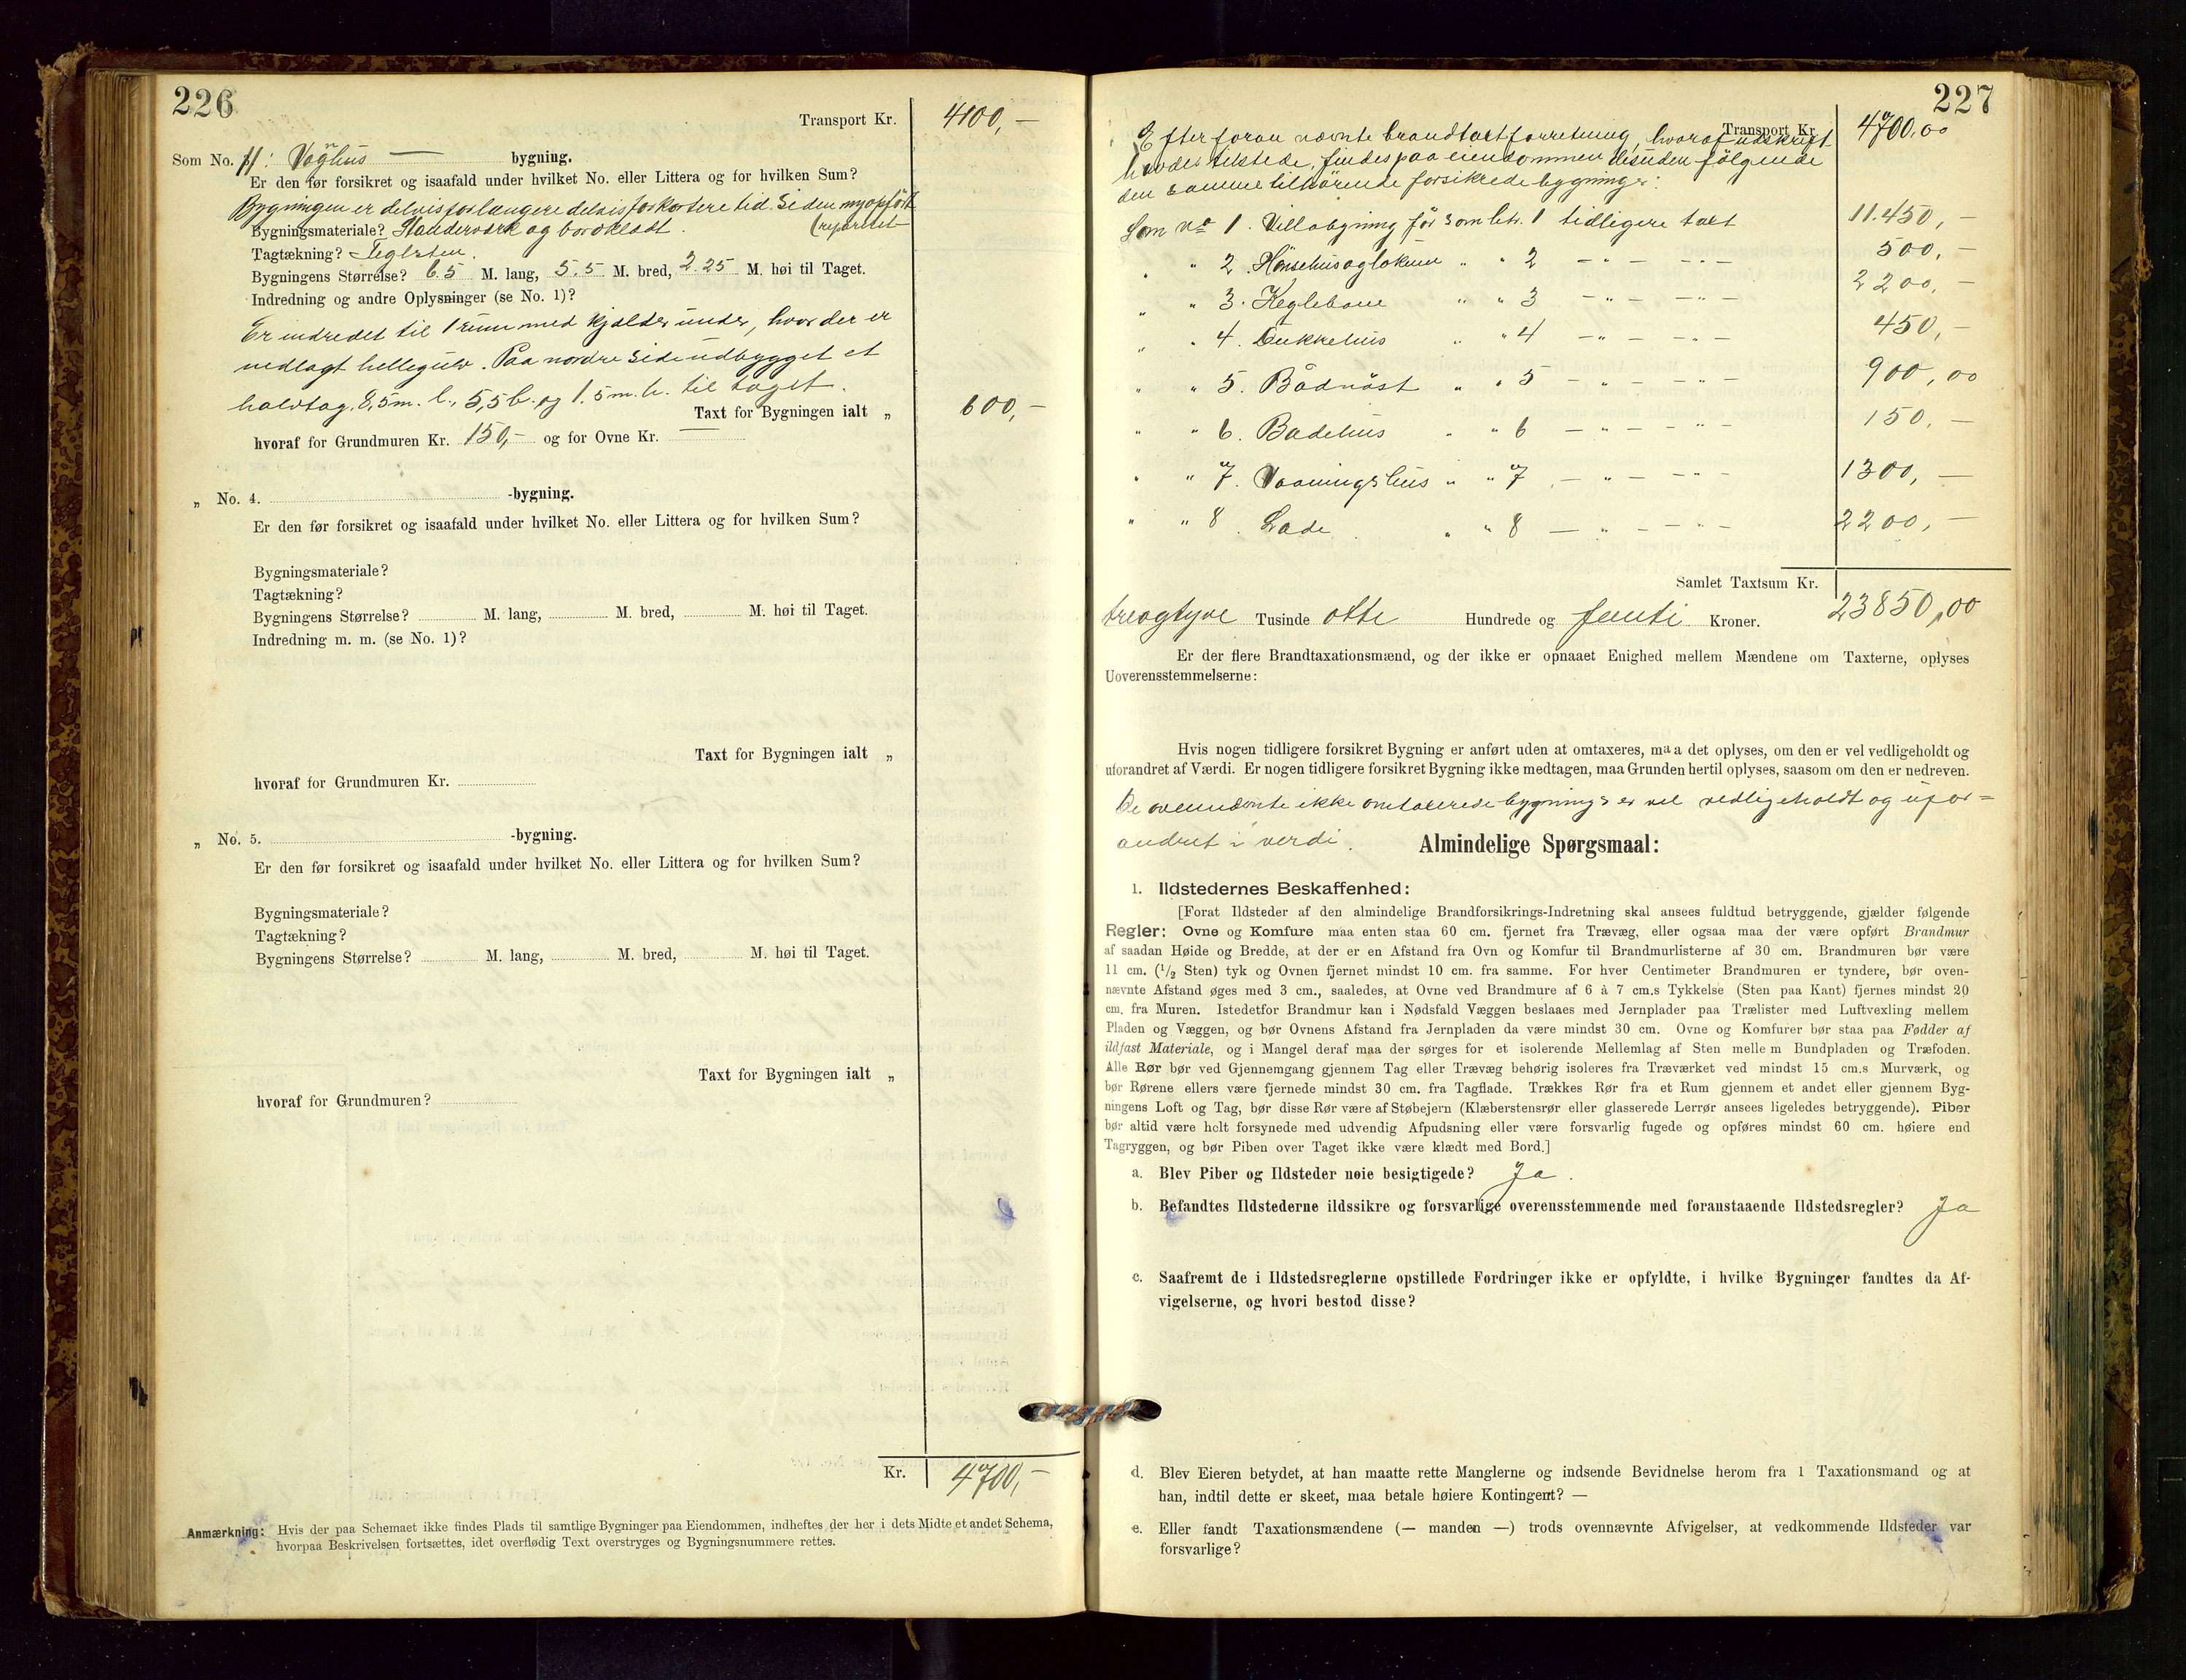 226
Transport Kr. 4100,—
Som No. 11: Vognhus — bygning.
Er den før forsikret og isaafald under hvilket No. eller Littera og for hvilken Sum?
Bygningen er delvis for længere delvis for kortere tid siden nyopført
(reparert
Bygningsmateriale? Standerværk og bordklædt.
Tagtækning? Teglsten.
Bygningens Størrelse? 6.5 M. lang, 5.5 M. bred, 2.25 M. høi til Taget.
Indredning og andre Oplysninger (se No. 1)?
Er indredet til 1 rum med kjælder under, hvor der er
nedlagt hellegulv. Paa nordre side udbygget et
halvtag, 8,5 m. l., 5,5 b. og 1.5 m. h. til taget.
Taxt for Bygningen ialt „ 600,—
hvoraf for Grundmuren Kr. 150,- og for Ovne Kr. —
„ No. 4. -bygning.
Er den før forsikret og isaafald under hvilket No. eller Littera og for hvilken Sum?
Bygningsmateriale?
Tagtækning?
Bygningens Størrelse? M. lang, M. bred, M. høi til Taget.
Indredning m. m. (se No. 1)?
Taxt for Bygningen ialt „
hvoraf for Grundmuren Kr.
„ No. 5. -bygning.
Er den før forsikret og isaafald under hvilket No. eller Littera og for hvilken Sum?
Bygningsmateriale?
Tagtækning?
Bygningens Størrelse? M. lang, M. bred, M. høi til Taget.
Taxt for Bygningen ialt „
hvoraf for Grundmuren?
Kr. 4700,—
Anmærkning: Hvis der paa Schemaet ikke findes Plads til samtlige Bygninger paa Eiendommen, indheftes der her i dets Midte et andet Schema,
hvorpaa Beskrivelsen fortsættes, idet overflødig Text overstryges og Bygningsnummere rettes.
227
Transport Kr. 4700,00
Efter foran nævnte brandtaxtforretning, hvoraf udskrift
havdes tilstede, findes paa eiendommen desuden følgende
den samme tilhørende forsikrede bygninger:
Som No 1. Villabygning før som litr. 1 tidligere taxt 11.450,—
„ „ 2. Hønsehus og lokum „ „ 2 — „ — — „ — 500,—
„ „ 3. Keglebane „ „ 3 — „ — — „ — 2200,—
„ „ 4. Dukkehus „ „ 4 — „ — — „ — 450,—
„ „ 5. Bådnøst „ „ 5 — „ — — „ — 900,00
„ „ 6. Badehus „ „ 6 — „ — — „ — 150,—
„ „ 7. Vaaningshus „ „ 7 — „ — — „ — 1300,—
„ „ 8. Lade „ „ 8 — „ — — „ — 2200,—
Samlet Taxtsum Kr. 23850,00
treogtyve Tusinde otte Hundrede og femti Kroner.
Er der flere Brandtaxationsmænd, og der ikke er opnaaet Enighed mellem Mændene om Taxterne, oplyses
Uoverensstemmelserne:
Hvis nogen tidligere forsikret Bygning er anført uden at omtaxeres, maa det oplyses, om den er vel vedligeholdt og
uforandret af Værdi. Er nogen tidligere forsikret Bygning ikke medtagen, maa Grunden hertil oplyses, saasom om den er nedreven.
De ovennævnte ikke omtaxerede bygninger er vel vedligeholdt og ufor=
andret i verdi.
Almindelige Spørgsmaal:
1. Ildstedernes Beskaffenhed:
[Forat Ildsteder af den almindelige Brandforsikrings-Indretning skal ansees fuldtud betryggende, gjælder følgende
Regler: Ovne og Komfure maa enten staa 60 cm. fjernet fra Trævæg, eller ogsaa maa der være opført Brandmur
af saadan Høide og Bredde, at der er en Afstand fra Ovn og Komfur til Brandmurlisterne af 30 cm. Brandmuren bør være
11 cm. (1/2 Sten) tyk og Ovnen fjernet mindst 10 cm. fra samme. For hver Centimeter Brandmuren er tyndere, bør oven-
nævnte Afstand øges med 3 cm., saaledes, at Ovne ved Brandmure af 6 à 7 cm.s Tykkelse (Sten paa Kant) fjernes mindst 20
cm. fra Muren. Istedetfor Brandmur kan i Nødsfald Væggen beslaaes med Jernplader paa Trælister med Luftvexling mellem
Pladen og Væggen, og bør Ovnens Afstand fra Jernpladen da være mindst 30 cm. Ovne og Komfurer bør staa paa Fødder af
ildfast Materiale, og i Mangel deraf maa der sørges for et isolerende Mellemlag af Sten mellem Bundpladen og Træfoden.
Alle Rør bør ved Gjennemgang gjennem Tag eller Trævæg behørig isoleres fra Træværket ved mindst 15 cm.s Murværk, og
bør Rørene ellers være fjernede mindst 30 cm. fra Tagflade. Trækkes Rør fra et Rum gjennem et andet eller gjennem Byg-
ningens Loft og Tag, bør disse Rør være af Støbejern (Klæberstensrør eller glasserede Lerrør ansees ligeledes betryggende). Piber
bør altid være helt forsynede med udvendig Afpudsning eller være forsvarlig fugede og opføres mindst 60 cm. høiere end
Tagryggen, og bør Piben over Taget ikke være klædt med Bord.]
a. Blev Piber og Ildsteder nøie besigtigede? Ja.
b. Befandtes Ildstederne ildssikre og forsvarlige overensstemmende med foranstaaende Ildstedsregler? Ja
c. Saafremt de i Ildstedsreglerne opstillede Fordringer ikke er opfyldte, i hvilke Bygninger fandtes da Af-
vigelserne, og hvori bestod disse?
d. Blev Eieren betydet, at han maatte rette Manglerne og indsende Bevidnelse herom fra 1 Taxationsmand og at
han, indtil dette er skeet, maa betale høiere Kontingent? —
e. Eller fandt Taxationsmændene (— manden —) trods ovennævnte Afvigelser, at vedkommende Ildsteder var
forsvarlige?